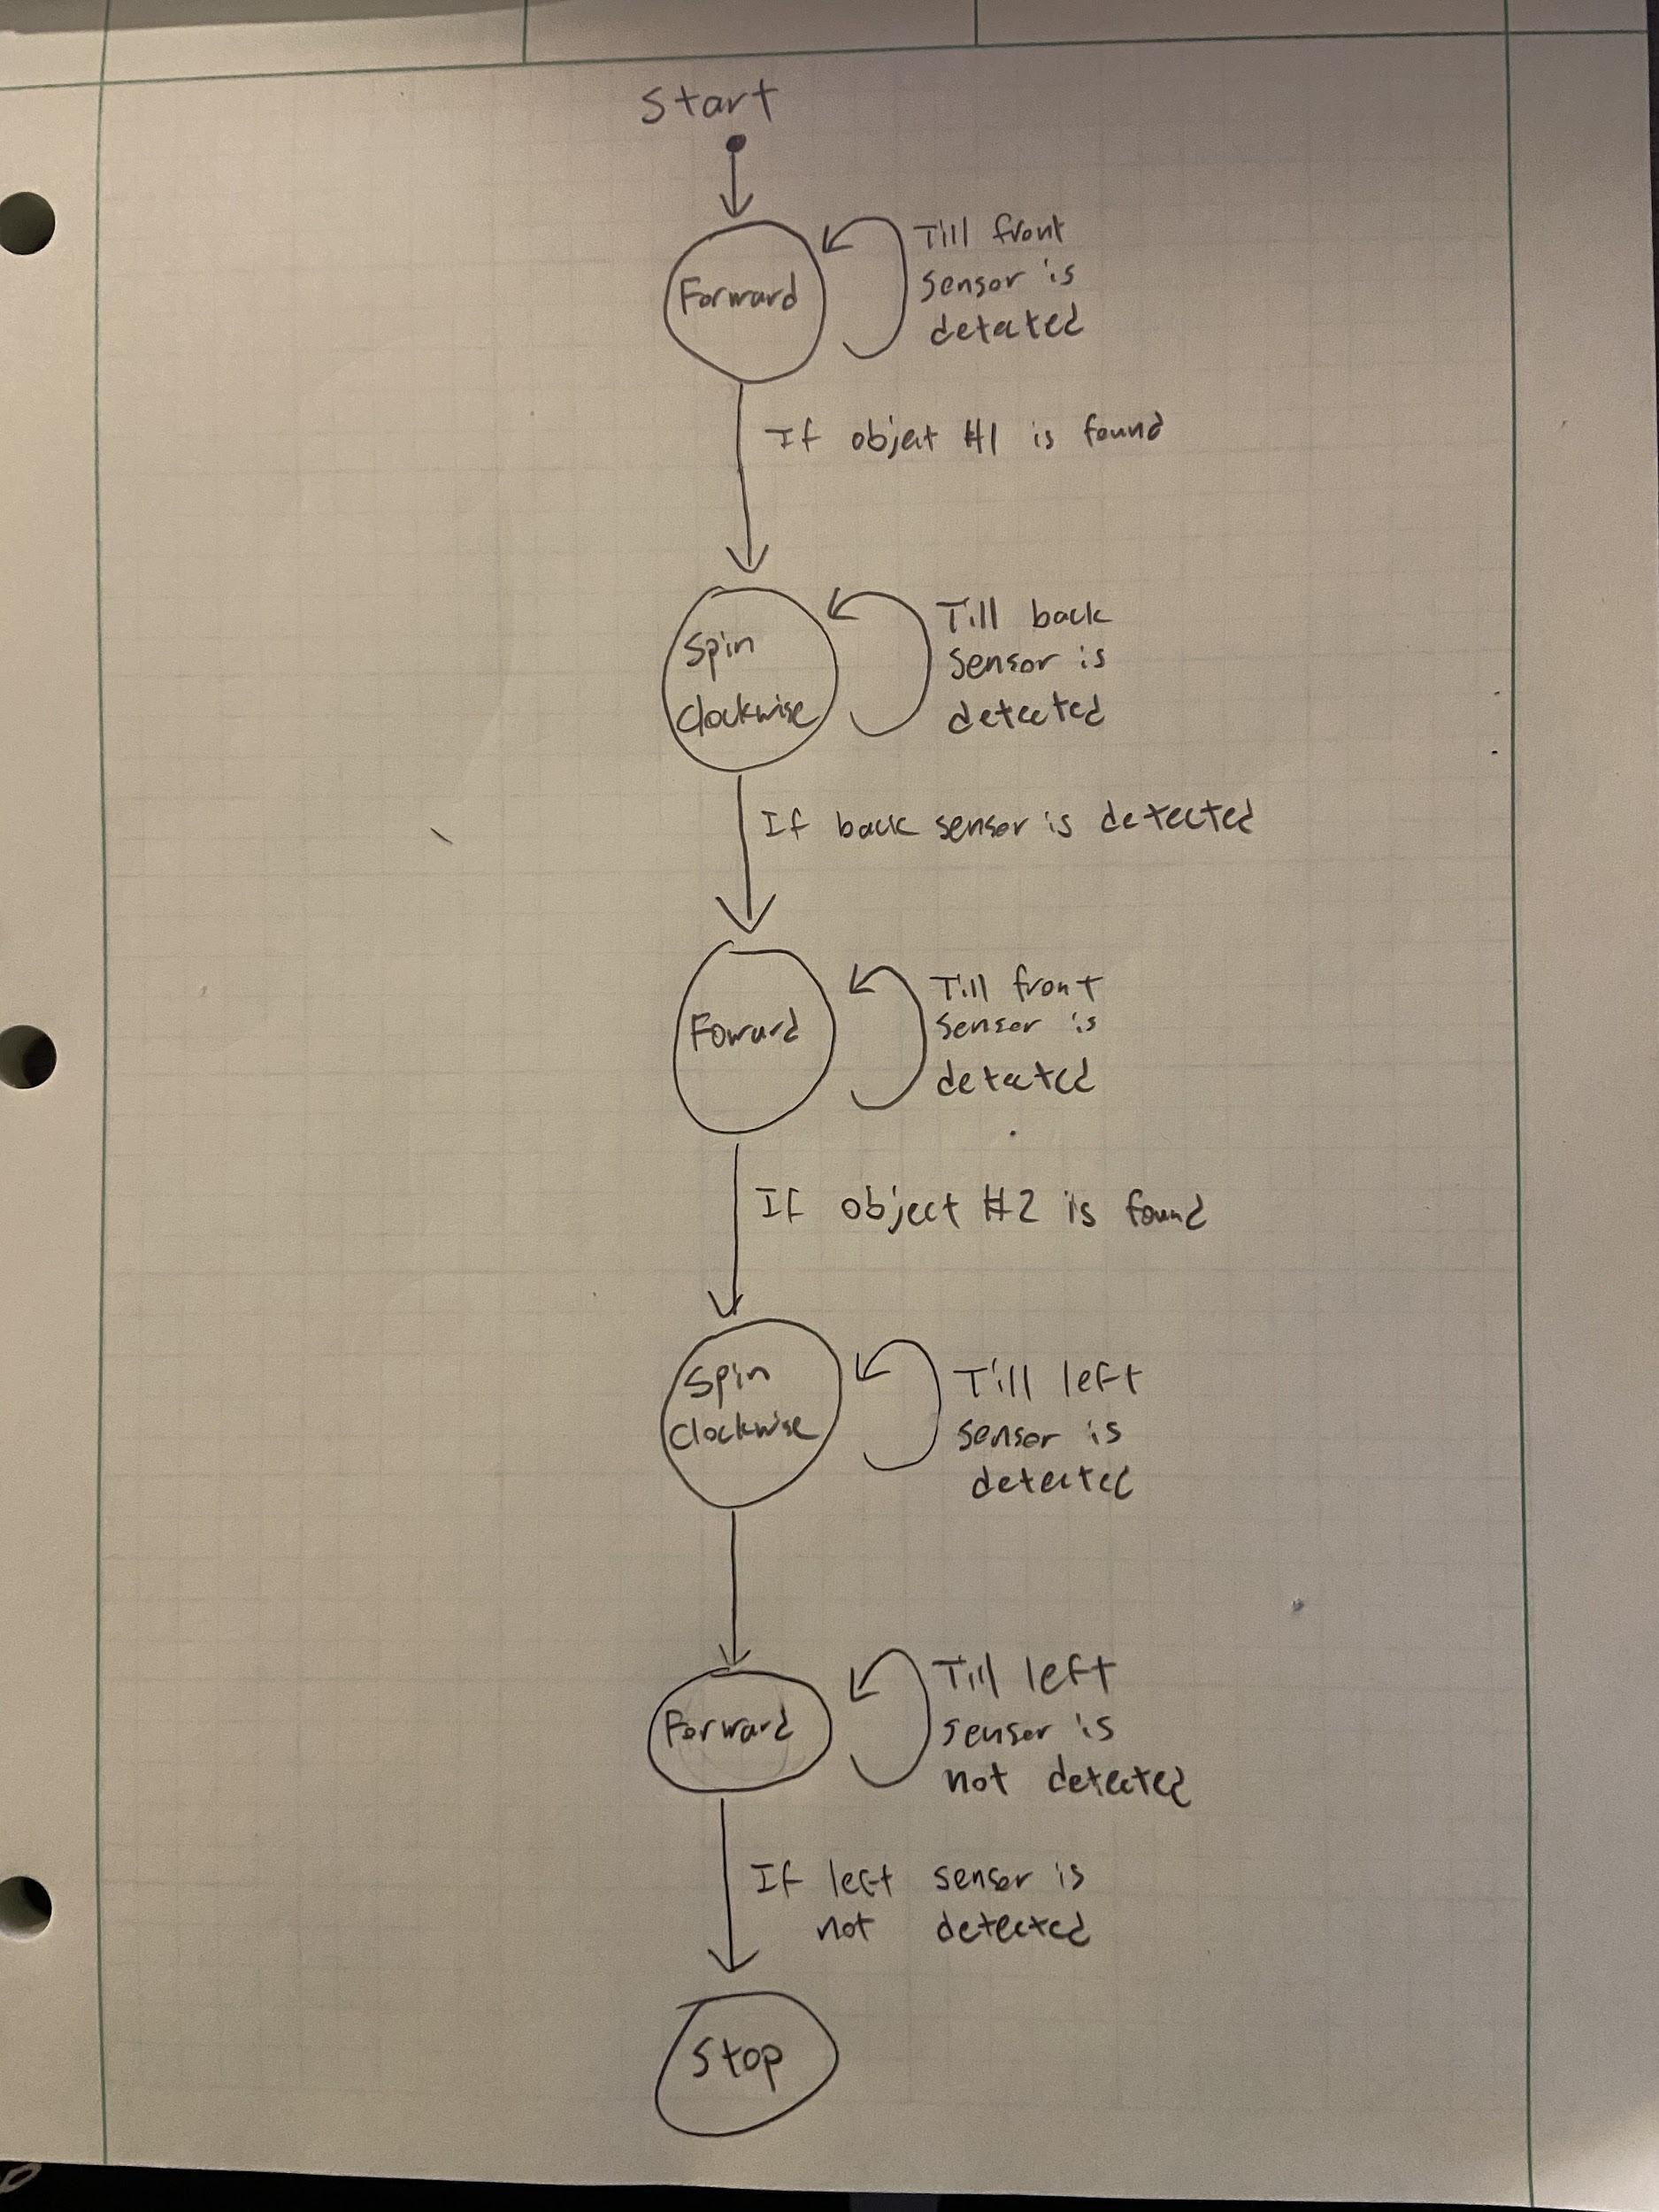 Start
Forward
Till front
sensor is
detected
If object #1 is found
Spin
Clockwise
Till back
sensor is
detected
If back sensor is detected
Foward
Till front
sensor is
detected
If object #2 is found
Spin
Clockwise
Till left
sensor is
detected
Forward
Till left
sensor is
not detected
If left sensor is
not detected
Stop